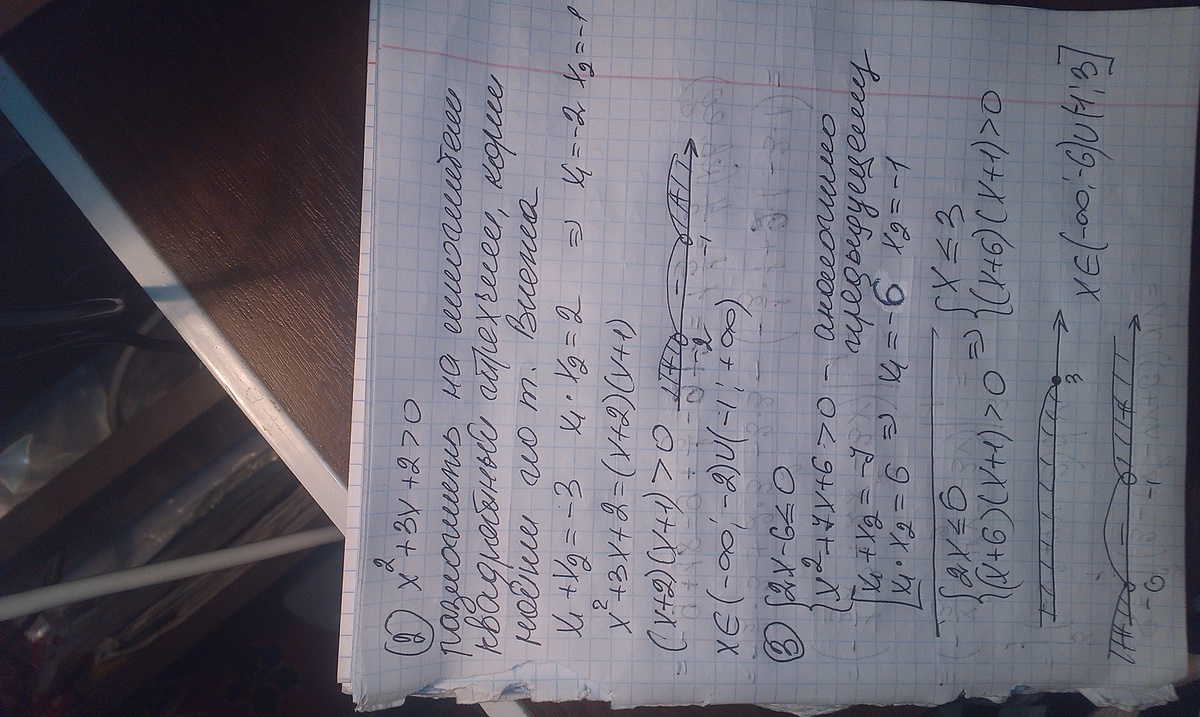 ② x²+3x+2>0
разложить на множители
квадратный трехчлен, корни
найдём по т. Виета
x₁+x₂=-3 x₁·x₂=2 ⇒ x₁=-2 x₂=-1
x²+3x+2=(x+2)(x+1)
(x+2)(x+1)>0
+ - +
-2 -1
x∈(-∞;-2)∪(-1;+∞)
③ {2x-6≤0
{x²+7x+6>0 - аналогично
предыдущему
[x₁+x₂=-7
[x₁·x₂=6 ⇒ x₁=-6 x₂=-1
{2x≤6
{(x+6)(x+1)>0 ⇒ {x≤3
{(x+6)(x+1)>0
3
x∈(-∞;-6)∪(-1;3]
+ - +
-6 -1